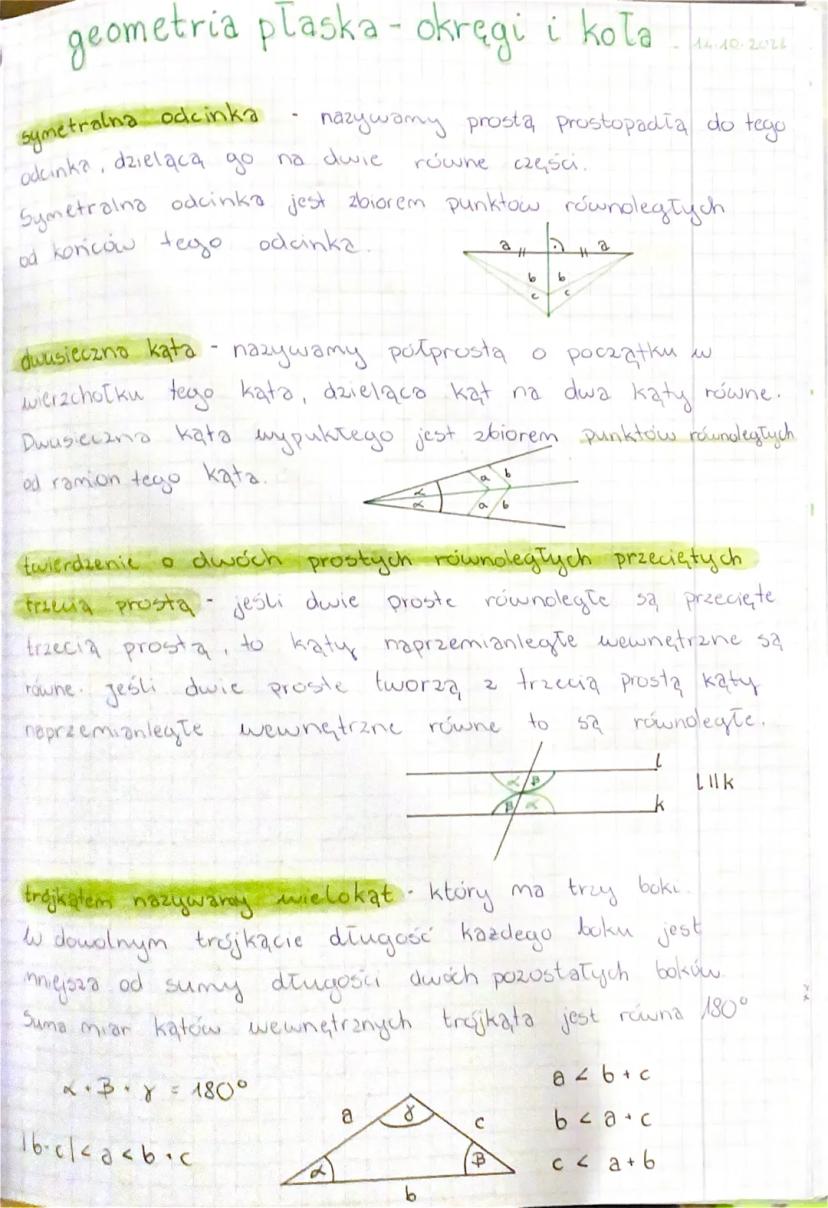 geometria płaska - okręgi i koła
symetralna odcinka - nazywamy prostą prostopadłą do tego
odcinka, dzielącą go na dwie równe części.
Symetralna odcinka jest zbiorem punktów równoległych
od końców tego odcinka.
a a
b b
c c
dwusieczna kąta - nazywamy półprostą o początku w
wierzchołku tego kąta, dzieląca kąt na dwa kąty równe.
Dwusieczna kąta wypukłego jest zbiorem punktów równoległych
od ramion tego kąta.
α a b
α a b
twierdzenie o dwóch prostych równoległych przeciętych
trzecią prostą - jeśli dwie proste równoległe są przecięte
trzecią prostą, to kąty naprzemianległe wewnętrzne są
równe. jeśli dwie proste tworzą z trzecią prostą kąty
naprzemianległe wewnętrzne równe to są równoległe.
l
α β
l || k
β α
k
trójkątem nazywamy wielokąt - który ma trzy boki.
W dowolnym trójkącie długość każdego boku jest
mniejsza od sumy długości dwóch pozostałych boków.
Suma miar kątów wewnętrznych trójkąta jest równa 180°
α + β + γ = 180°
|b-c| < a < b + c
a γ c
α β
b
a < b + c
b < a + c
c < a + b